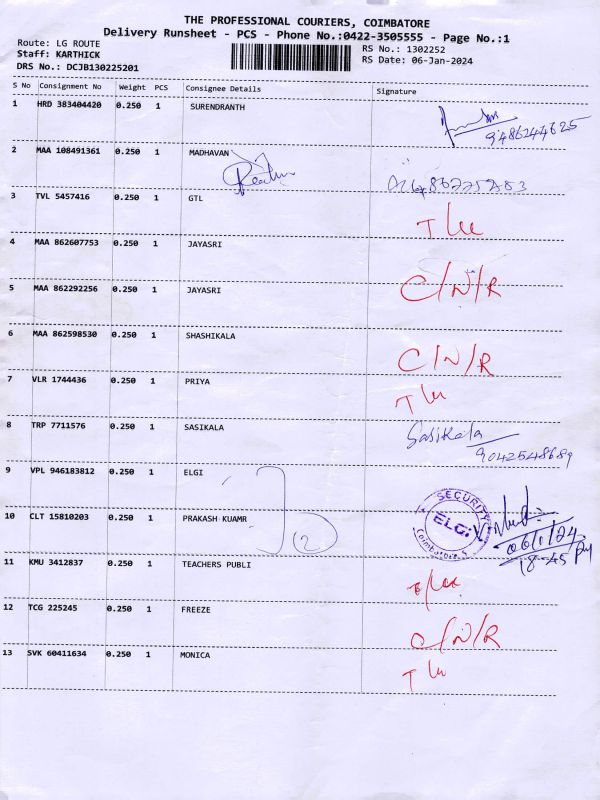 THE PROFESSIONAL COURIERS, COIMBATORE
Delivery Runsheet - PCS - Phone No.:0422-3505555 - Page No.:1
Route: LG ROUTE RS No.: 1302252
Staff: KARTHICK RS Date: 06-Jan-2024
DRS No.: DCJB130225201
S No Consignment No Weight PCS Consignee Details Signature
1 HRD 383404420 0.250 1 SURENDRANTH
9486244625
2 MAA 108491361 0.250 1 MADHAVAN
3 TVL 5457416 0.250 1 GTL
4 MAA 862607753 0.250 1 JAYASRI
5 MAA 862292256 0.250 1 JAYASRI C/N/R
6 MAA 862598530 0.250 1 SHASHIKALA C/N/R
7 VLR 1744436 0.250 1 PRIYA
8 TRP 7711576 0.250 1 SASIKALA Sasikala
9042548689
9 VPL 946183812 0.250 1 ELGI
SECURITY
ELGi
Coimbatore-5
10 CLT 15810203 0.250 1 PRAKASH KUAMR 2
06/1/24
18-45 PM
11 KMU 3412837 0.250 1 TEACHERS PUBLI
12 TCG 225245 0.250 1 FREEZE C/N/R
13 SVK 60411634 0.250 1 MONICA